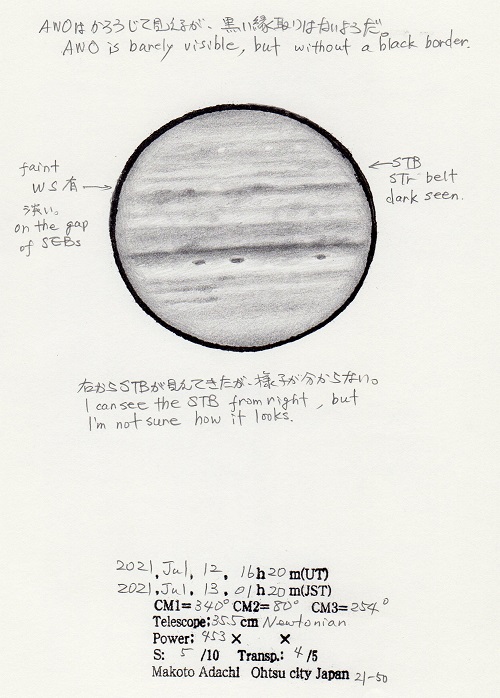 AWOはかろうじて見えるが、黒い縁取りはないようだ。
AWO is barely visible, but without a black border.
faint
WS有
淡い。
on the gap
of SEBs
STB
STr belt
dark seen.
右からSTBが見えてきたが、様子が分からない。
I can see the STB from right, but
I'm not sure how it looks.
2021, Jul, 12, 16h20m(UT)
2021, Jul, 13, 01h20m(JST)
CM1=340° CM2=80° CM3=254°
Telescope:35.5cm Newtonian
Power: 453× ×
S: 5 /10 Transp.: 4/5
Makoto Adachi Ohtsu city Japan 21-50